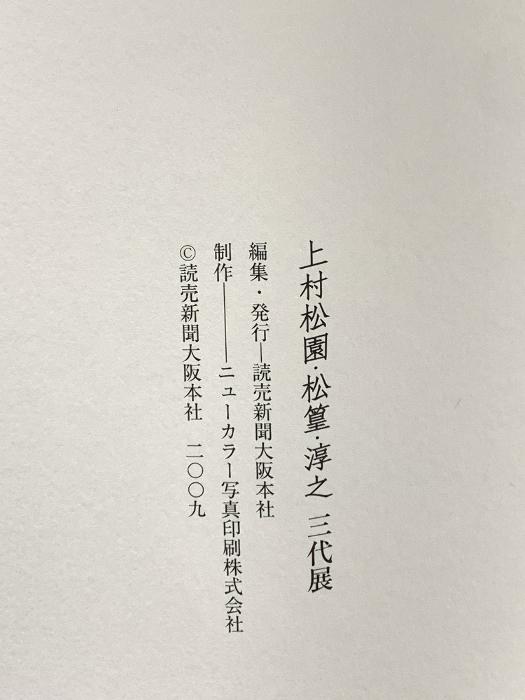 上村松園・松篁・淳之 三代展
編集・発行―読売新聞大阪本社
制作―――ニューカラー写真印刷株式会社
©読売新聞大阪本社 二〇〇九